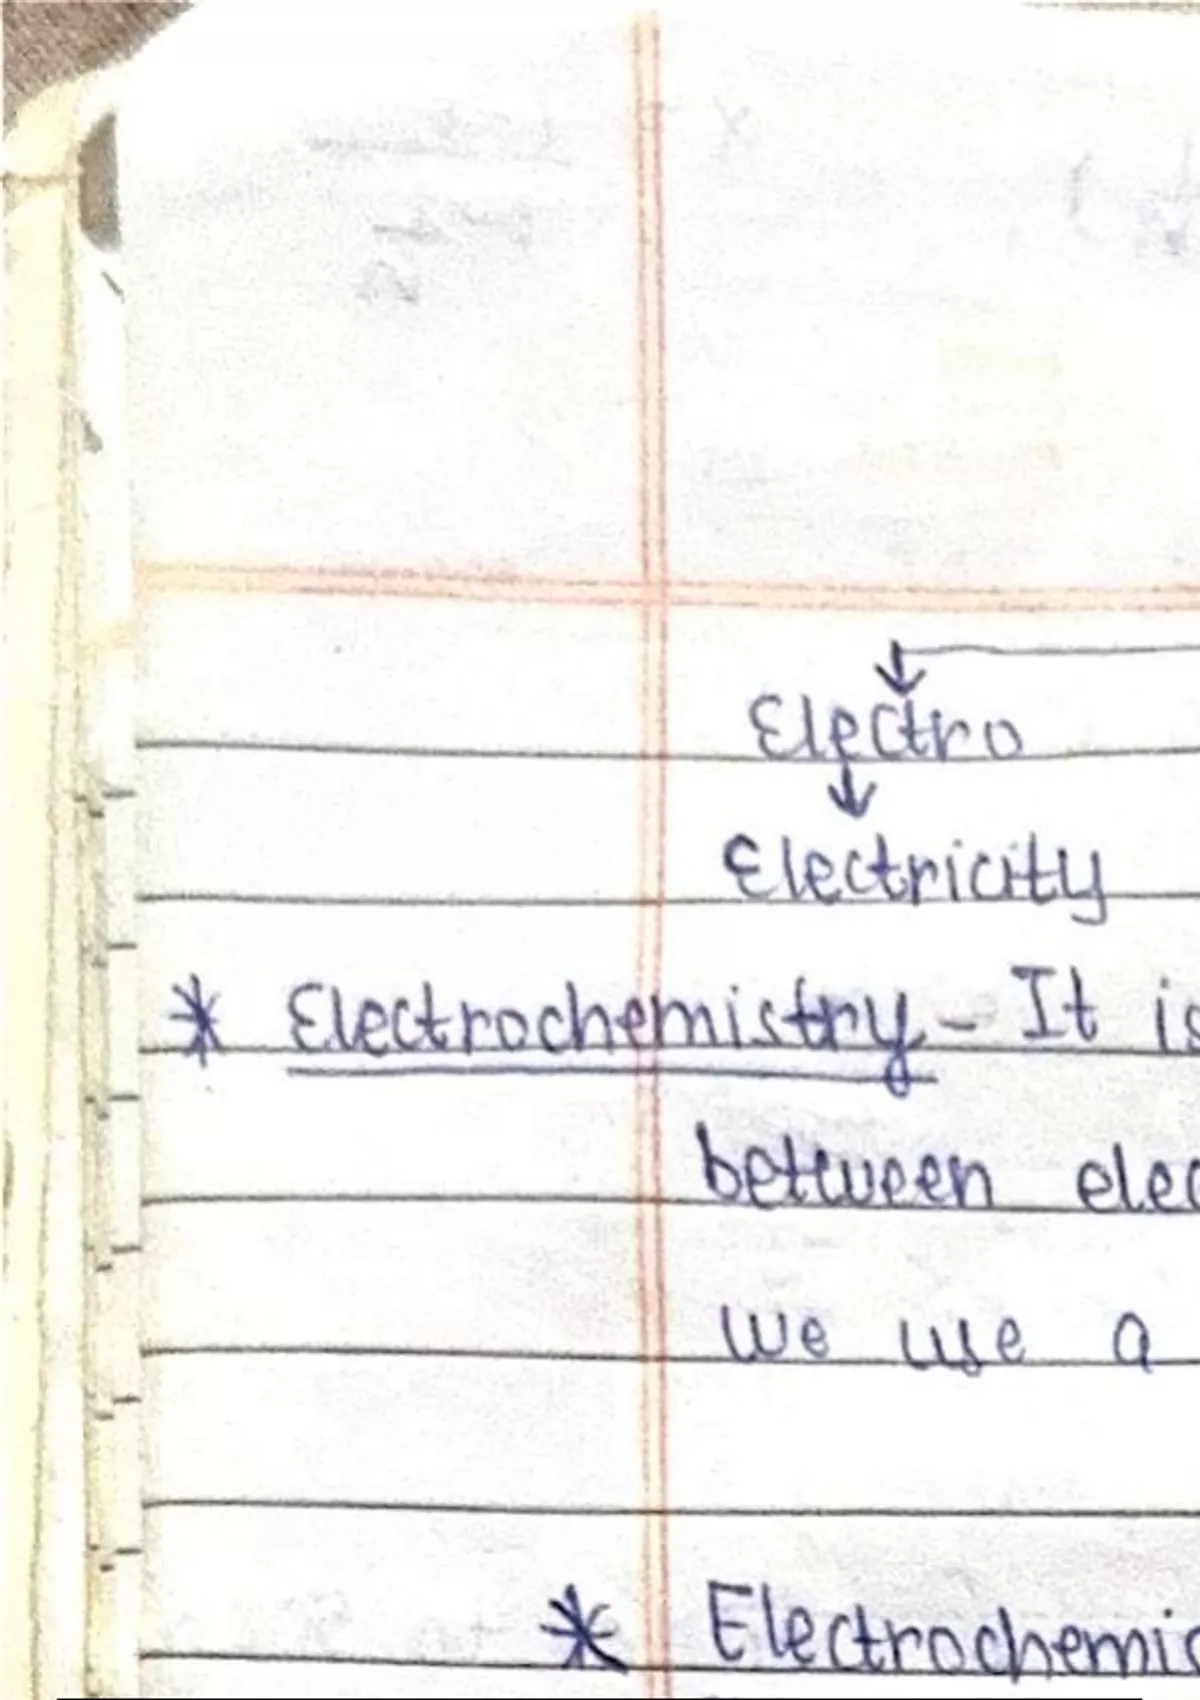 Electro
↓
Electricity
* Electrochemistry - It is
between elec
we use a
* Electrochemis